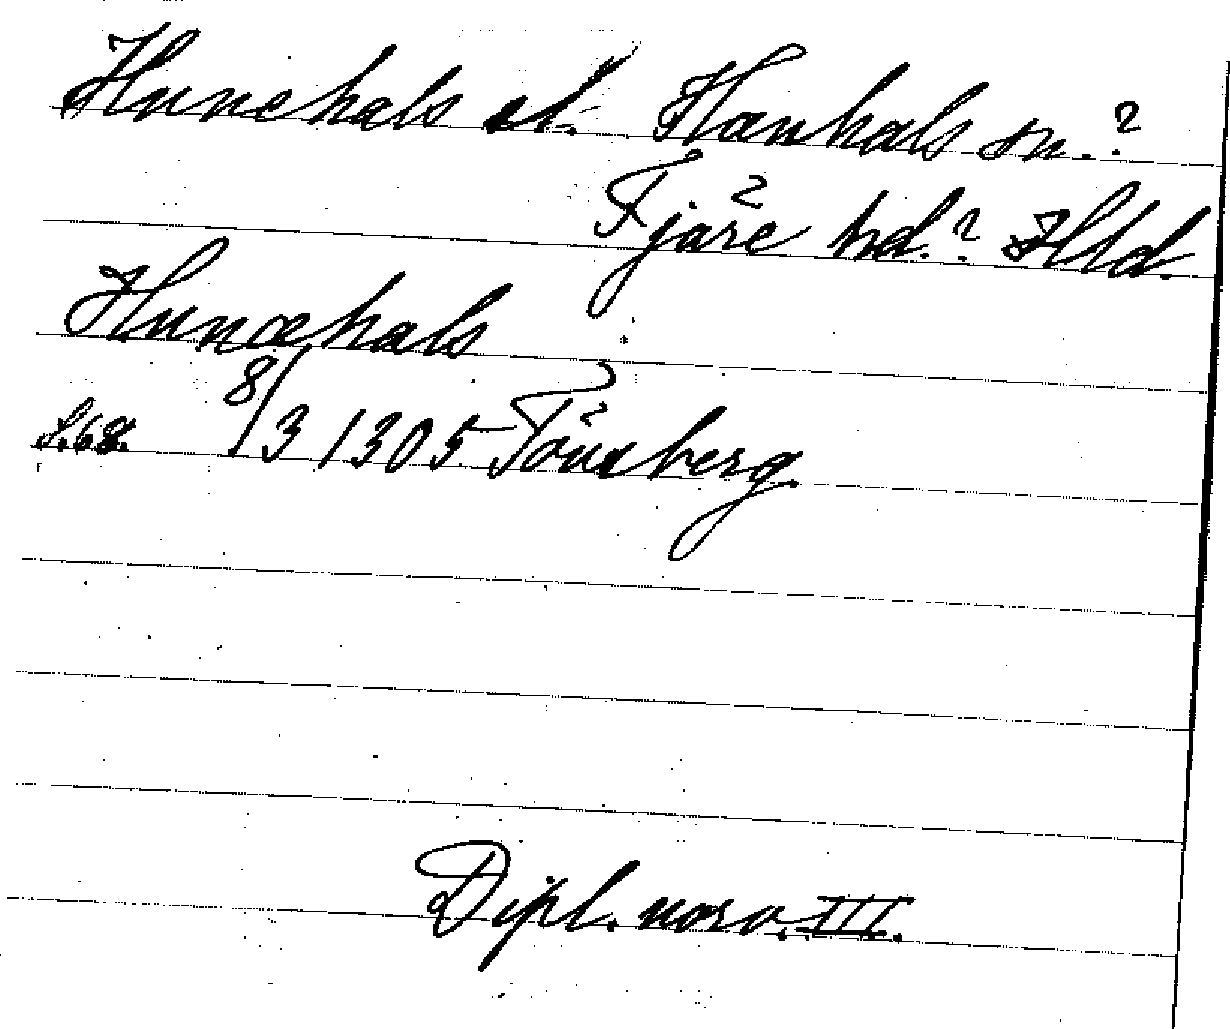 Hunehals sl. Hanhals sn.?
Fjäre hd.? Hld.
Hunæhals
s.68. 8/3 1305 Tönsberg.
Dipl. norv. III.